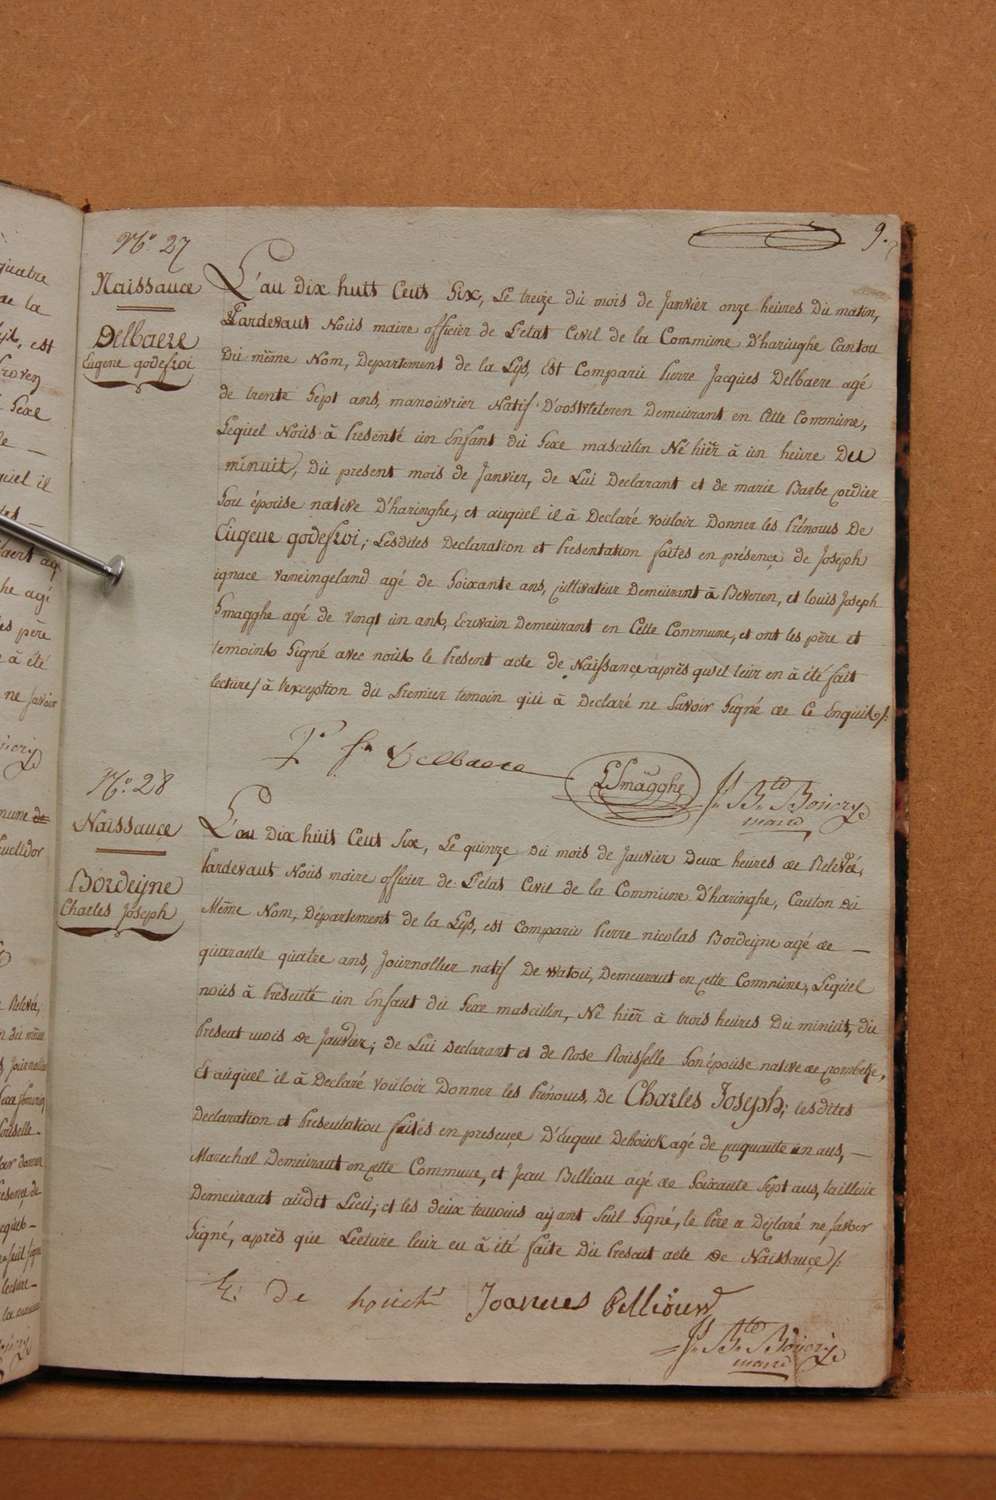 9.
N.º 27
Naissance
Delbaere
Eugene godefroi
L'an dix huit Cent Six, Le treize du mois de Janvier onze heures du matin,
Pardevant Nous maire officier de l'etat Civil de la Commune D'haringhe Canton
Du même Nom, Departement de la Lys, Est Comparu Pierre Jacques Delbaere agé
de trente Sept ans, manouvrier Natif D'oostvleteren Demeurant en Cette Commune,
Lequel Nous à Presenté un Enfant du Sexe masculin Né hier à un heure Du
minuit, du present mois de Janvier, de Lui Declarant et de marie Barbe Cordier
Son épouse native D'haringhe, et auquel il à Declaré vouloir Donner les Prénoms De
Eugene godefroi; Lesdites Declaration et Presentation faites en présence de Joseph
ignace vaneingeland agé de Soixante ans, Cultivateur Demeurant à Beveren, et louis Joseph
Smagghe agé de vingt un ans, Ecrivain Demeurant en Cette Commune, et ont les père et
temoins Signé avec nous le Present acte de Naissance après qu'il leur en à été fait
lecture / à l'exception du Premier temoin qui à Declaré ne Savoir Signé de Ce Enquis /.
P.r J.s Delbaere
L Smagghe
J. B.te B. Boüery
maire
N.º 28
Naissance
Bordeyne
Charles Joseph
L'an Dix huit Cent Six, Le quinze Du mois de Janvier Deux heures de Relevée,
Pardevant Nous maire officier de l'etat Civil de la Commune D'haringhe, Canton du
Même Nom, Département de la Lys, est Comparu Pierre nicolas Bordeyne agé de —
quarante quatre ans, Journallier natif De watou, Demeurant en cette Commune, Lequel
nous à Presenté un Enfant du Sexe masculin, Né hier à trois heures Du minuit, du
Present mois de Janvier; de Lui Declarant et de Rose Rousselle Son épouse native de Crombeke,
Et auquel il à Declaré vouloir Donner les Prénoms, De Charles Joseph; lesdites
Declaration et Presentation faites en presence D'Eugene Debouck agé de cinquante un ans, —
Marechal Demeurant en cette Commune, et Jean Billiau agé de Soixante Sept ans, tailleur
Demeurant audit Lieu; et les deux temoins ayant Seul Signé, le Père a Declaré ne savoir
Signé, après que Lecture leur en à été faite Du Present acte de Naissance /.
E. de
Joannes Pelliouw
J. B.te B. Boüery
maire